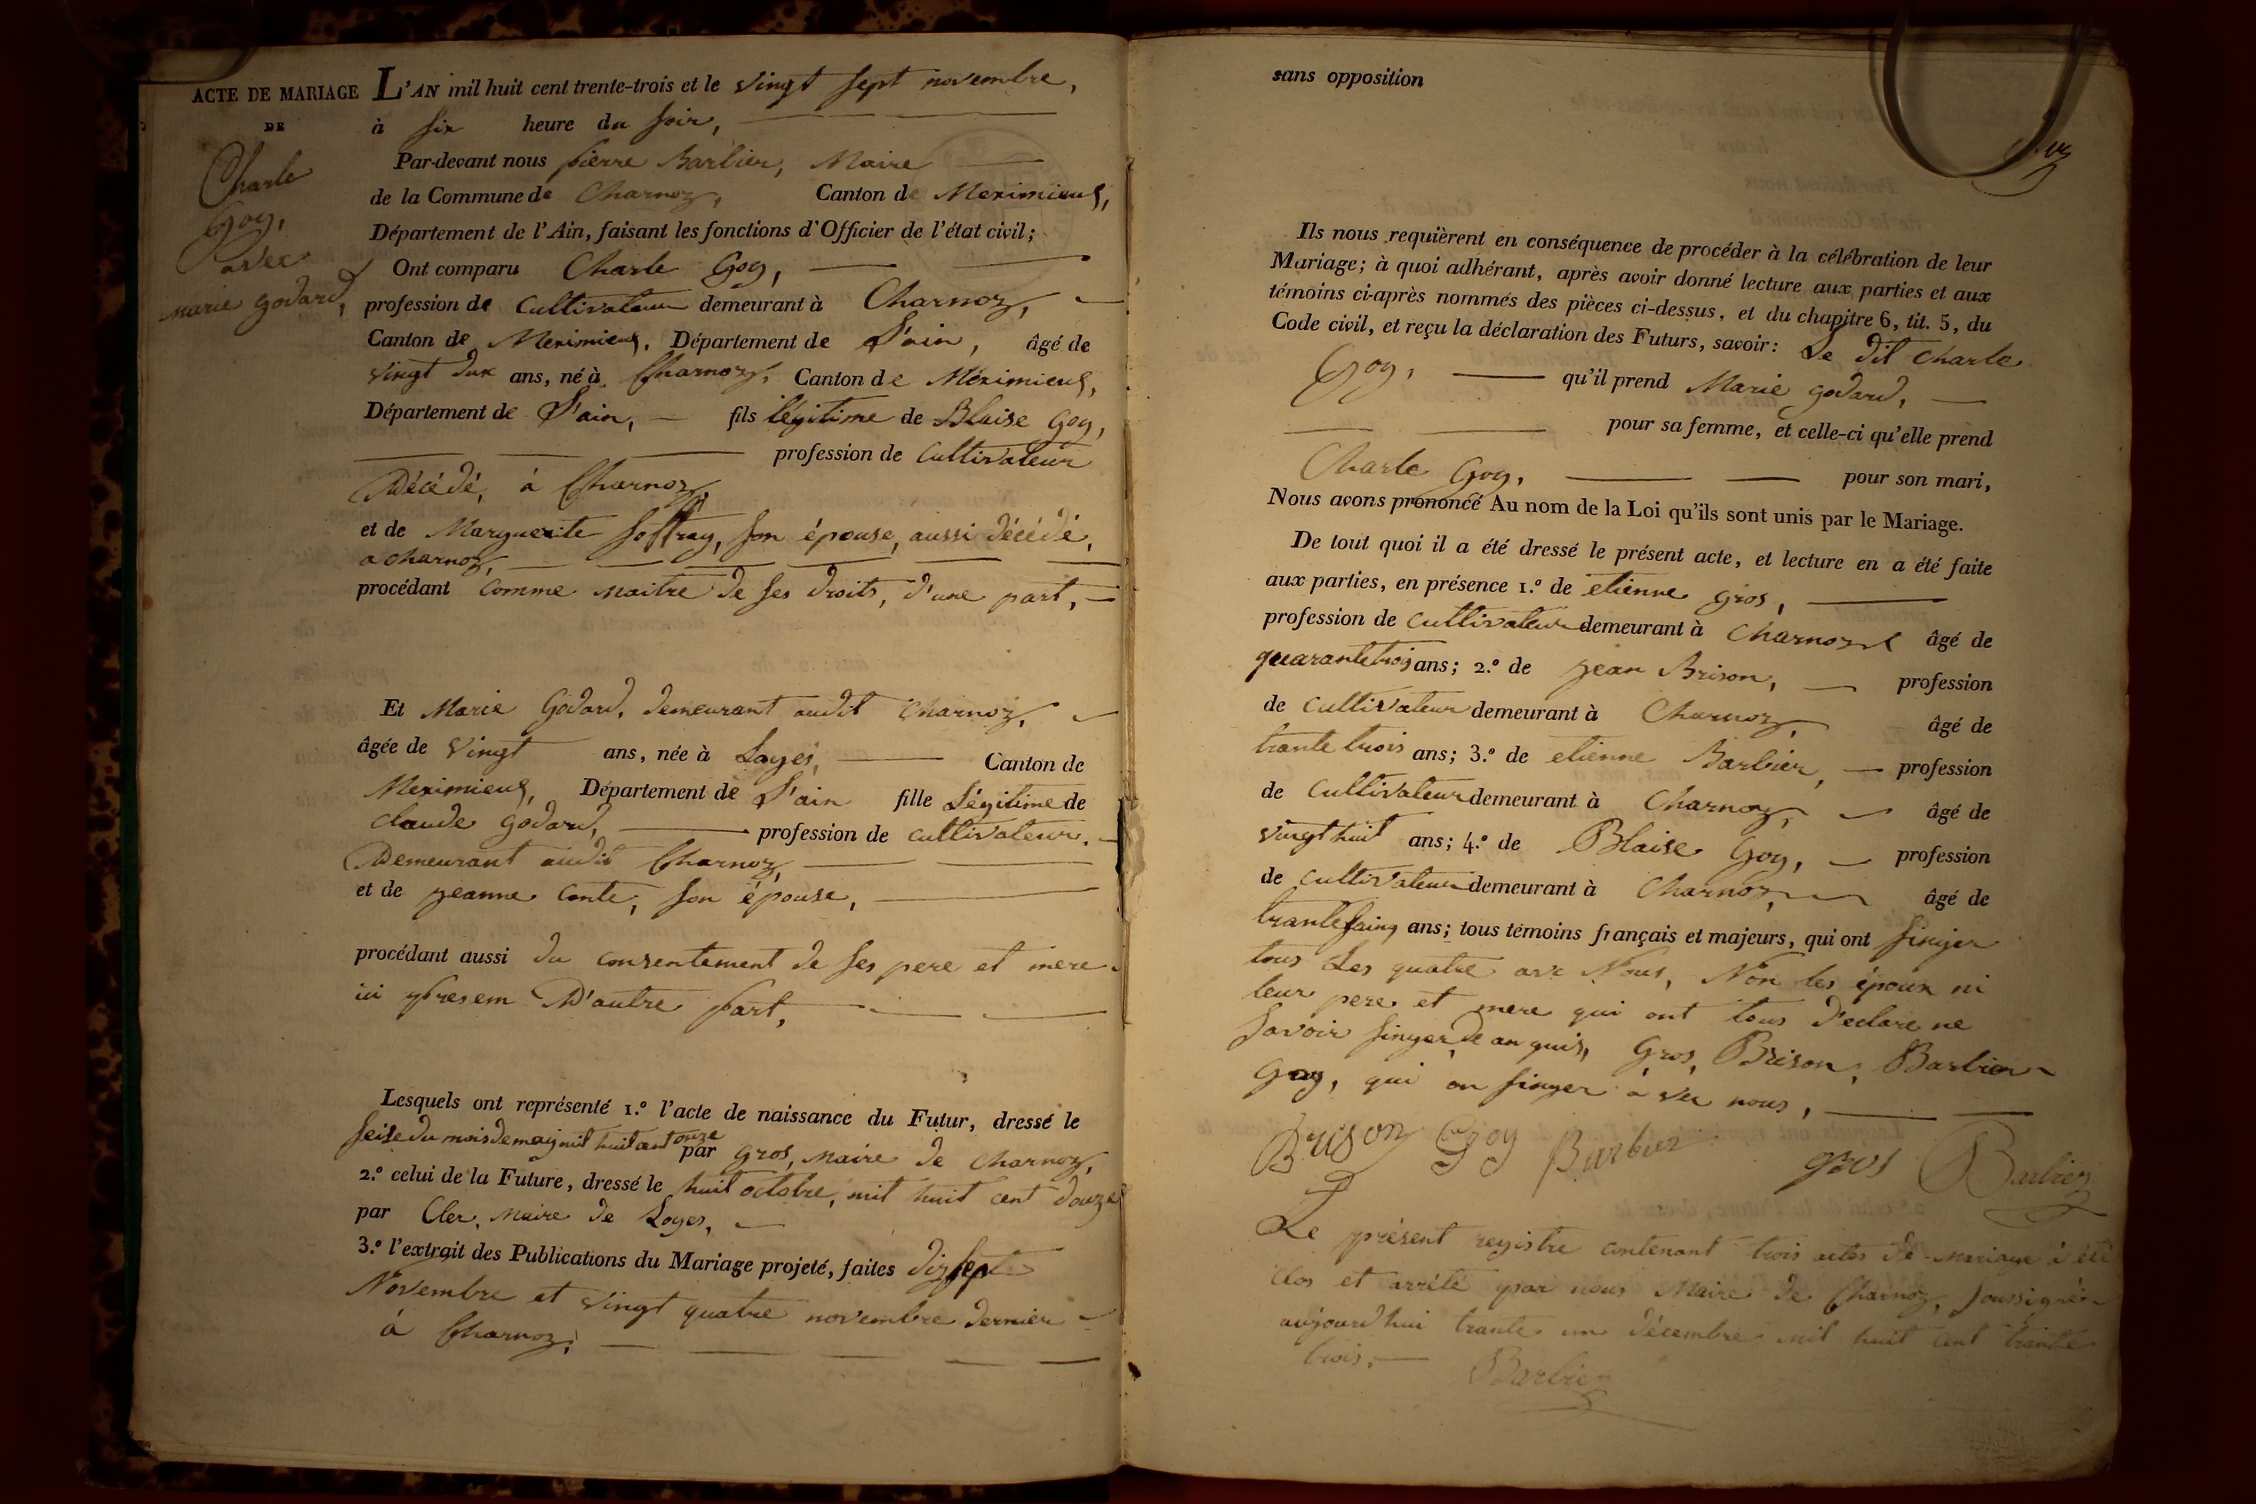 ACTE DE MARIAGE
DE
Charle
Goy,
avec
marie godard,
L'AN mil huit cent trente-trois et le vingt sept novembre,
à six heure du soir,
Par-devant nous pierre Barbier, Maire
de la Commune de Charnoz, Canton de Meximieux,
Département de l'Ain, faisant les fonctions d'Officier de l'état civil;
Ont comparu Charle Goy,
profession de Cultivateur demeurant à Charnoz,
Canton de Meximieux, Département de L'ain, âgé de
vingt dux ans, né à Charnoz, Canton de Meximieux,
Département de L'ain, fils légitime de Blaise Goy,
profession de Cultivateur
Décédé, à Charnoz,
et de Marguerite Joffray, son épouse, aussi décédé,
a charnoz,
procédant comme maitre de ses droits, d'une part,
Et Marie Godard, demeurant audit Charnoz,
âgée de vingt ans, née à Loyes, Canton de
Meximieux, Département de L'ain fille Légitime de
claude godard, profession de cultivateur,
Demeurant audit Charnoz,
et de jeanne Conte, son épouse,
procédant aussi du consentement de ses pere et mere
ici presem D'autre part,
Lesquels ont représenté 1.º l'acte de naissance du Futur, dressé le
seise du mois de may mil huit cent onze par gros, maire de Charnoz,
2.º celui de la Future, dressé le huit octobre, mil huit cent douze
par Cler, Maire de Loyes,
3.º l'extrait des Publications du Mariage projeté, faites dix sept
Novembre et vingt quatre novembre dernier
à Charnoz;
sans opposition
Ils nous requièrent en conséquence de procéder à la célébration de leur
Mariage; à quoi adhérant, après avoir donné lecture aux parties et aux
témoins ci-après nommés des pièces ci-dessus, et du chapitre 6, tit. 5, du
Code civil, et reçu la déclaration des Futurs, savoir: Le dit Charle
Goy, qu'il prend Marie godard,
pour sa femme, et celle-ci qu'elle prend
Charle Goy, pour son mari,
Nous avons prononcé Au nom de la Loi qu'ils sont unis par le Mariage.
De tout quoi il a été dressé le présent acte, et lecture en a été faite
aux parties, en présence 1.º de etienne gros,
profession de cultivateur demeurant à Charnoz âgé de
quarante trois ans; 2.º de jean Brison, profession
de cultivateur demeurant à Charnoz, âgé de
trante trois ans; 3.º de etienne Barbier, profession
de cultivateur demeurant à Charnoz, âgé de
vingt huit ans; 4.º de Blaise Goy, profession
de cultivateur demeurant à Charnoz, âgé de
trante saing ans; tous témoins français et majeurs, qui ont singer
tous Les quatre avc Nous, Non les époux ni
leur pere et mere qui ont tous déclare ne
savoir singer, de an quis, Gros, Brison, Barbier
goy, qui on singer a vec nous,
Brison Goy Barbier gros Barbier
Le présent registre contenant trois actes de mariage a été
clos et arrété par nous Maire de Charnoz, soussigné
aujourd'hui trante un décembre mil huit cent trante
trois,
Barbier